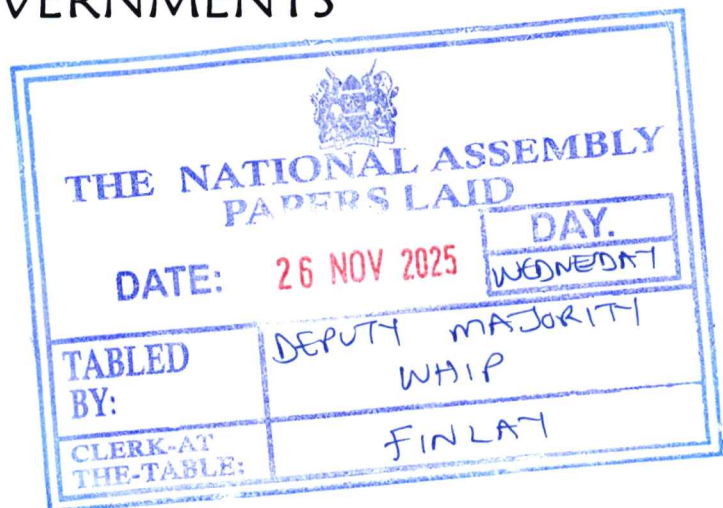 VERNMENTS
THE NATIONAL ASSEMBLY
PAPERS LAID
DATE: 26 NOV 2025
DAY.
WEDNEDAY
TABLED BY:
DEPUTY MAJORITY
WHIP
CLERK-AT
THE-TABLE:
FINLAY